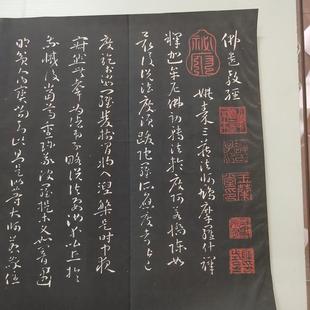 佛遺教經
姚秦三藏法師鳩摩羅什譯
釋迦牟尼佛初轉法輪度阿若憍陳如
最後說法度須跋陀羅所應度者皆已
度訖於娑羅雙樹間將入涅槃是時中夜
寂然無聲為諸弟子略說法要汝等比丘於
我滅後當尊重珍敬波羅提木叉如暗遇
明貧人得寶當知此則是汝等大師若我住